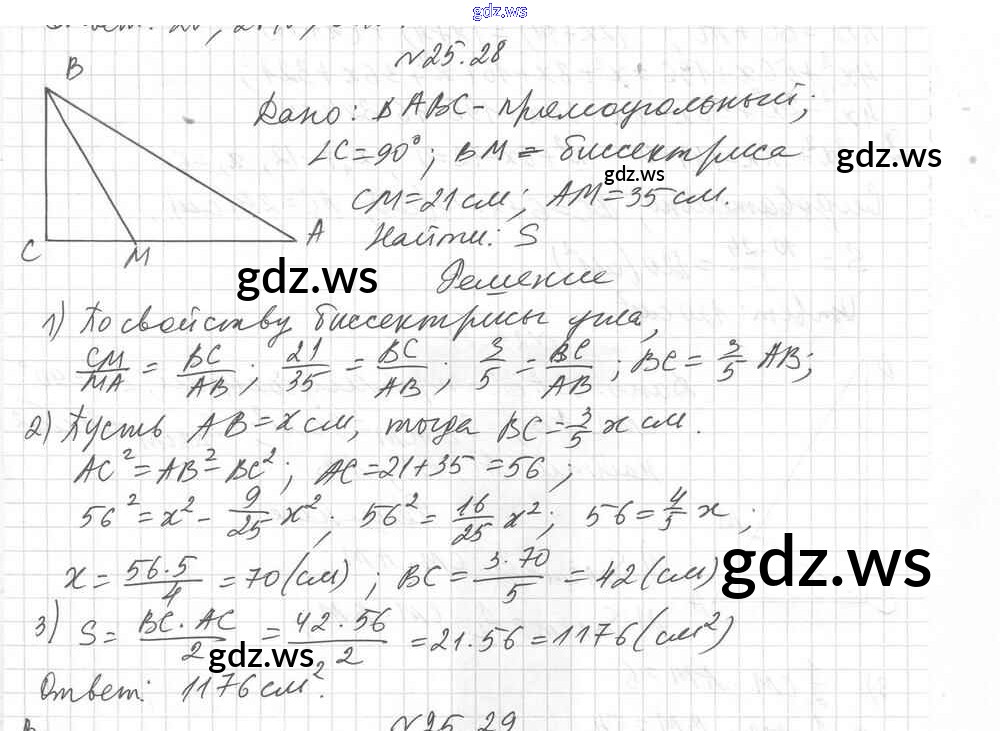 gdz.ws
№25.28
B
Дано: ΔABC - прямоугольный;
∠C=90°; BM - биссектриса
gdz.ws
gdz.ws
CM=21см; AM=35см.
C M A
Найти: S
gdz.ws
Решение
1) По свойству биссектрисы угла,
CM/MA = BC/AB; 21/35 = BC/AB; 3/5 = BC/AB; BC = 3/5 AB;
2) Пусть AB=x см, тогда BC=3/5 x см.
AC²=AB²-BC²; AC=21+35=56;
56²=x²-9/25 x²; 56²=16/25 x²; 56=4/5 x;
x = 56·5/4 = 70(см); BC = 3·70/5 = 42(см)
gdz.ws
3) S = BC·AC/2 = 42·56/2 = 21·56 = 1176(см²)
gdz.ws
Ответ: 1176 см².
№25.29